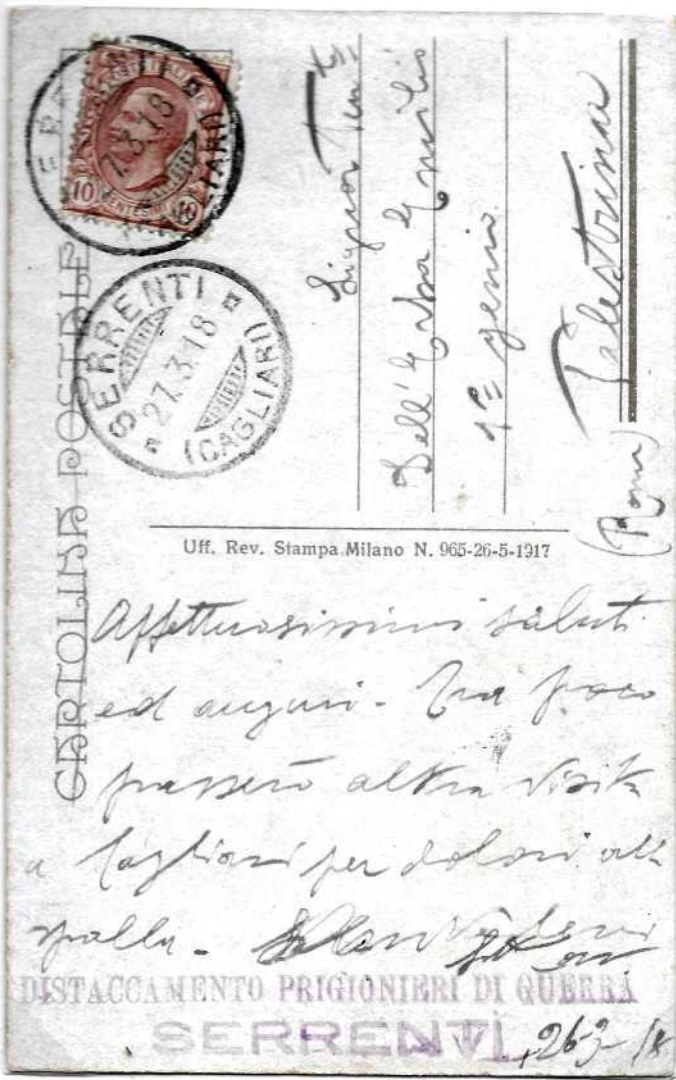 CARTOLINA POSTALE
POSTE ITALIANE
10 CENTESIMI 10
SERRENTI
27.3.18
(CAGLIARI)
SERRENTI
27.3.18
(CAGLIARI)
Signor Ten
Dell'Erba Emilio
1º genio
Palestrina
(Roma)
Uff. Rev. Stampa Milano N. 965-26-5-1917
Affettuosissimi saluti
ed auguri - Tra poco
passerò altra visita
a Cagliari per dolori alla
spalla -
DISTACCAMENTO PRIGIONIERI DI GUERRA
SERRENTI